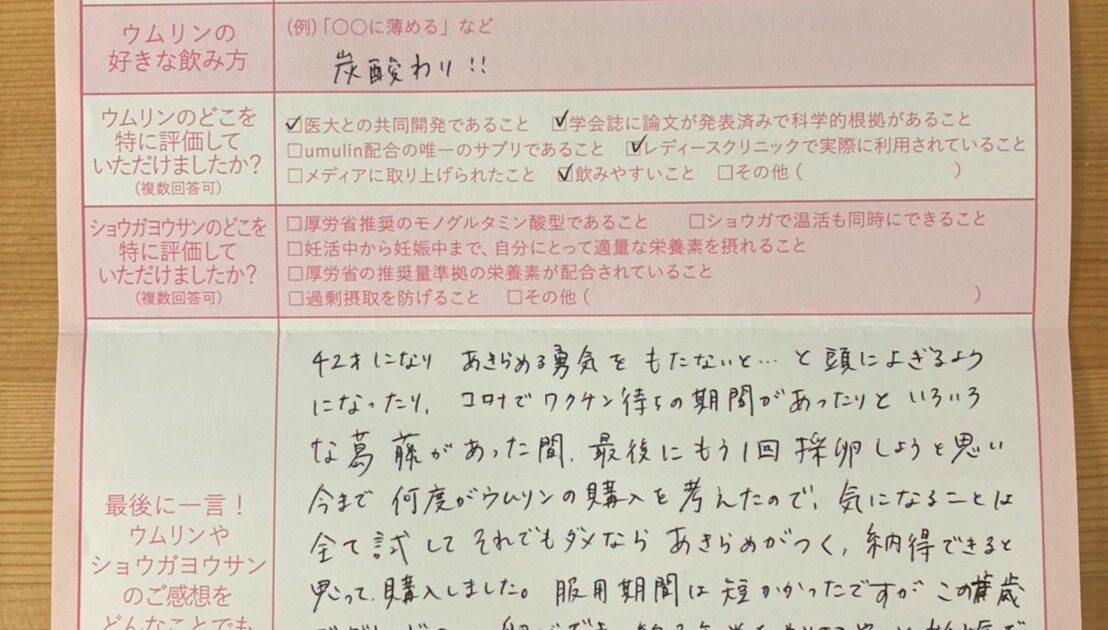 ウムリンの
好きな飲み方
(例)「〇〇に薄める」など
炭酸わり!!
ウムリンのどこを
特に評価して
いただけましたか?
(複数回答可)
☑医大との共同開発であること ☑学会誌に論文が発表済みで科学的根拠があること
□umulin配合の唯一のサプリであること ☑レディースクリニックで実際に利用されていること
□メディアに取り上げられたこと ☑飲みやすいこと □その他( )
ショウガヨウサンのどこを
特に評価して
いただけましたか?
(複数回答可)
□厚労省推奨のモノグルタミン酸型であること □ショウガで温活も同時にできること
□妊活中から妊娠中まで、自分にとって適量な栄養素を摂れること
□厚労省の推奨量準拠の栄養素が配合されていること
□過剰摂取を防げること □その他( )
最後に一言!
ウムリンや
ショウガヨウサン
のご感想を
どんなことでも
42才になり あきらめる勇気を もたないと… と頭によぎるよう
になったり、コロナでワクチン待ちの期間があったりと いろいろ
な葛藤があった間、最後にもう1回採卵しようと思い
今まで 何度がウムリンの購入を考えたので、気になることは
全て試して それでもダメなら あきらめがつく、納得できると
思って、購入しました。服用期間は短かかったですが この 歳